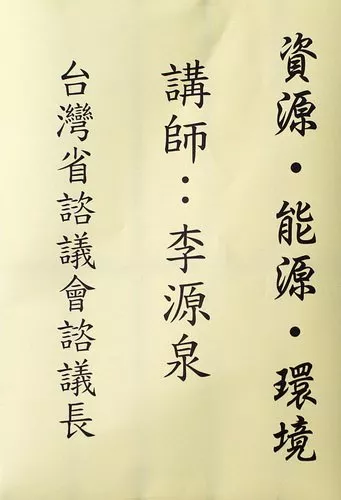 資源·能源·環境
講師：李源泉
台灣省諮議會諮議長